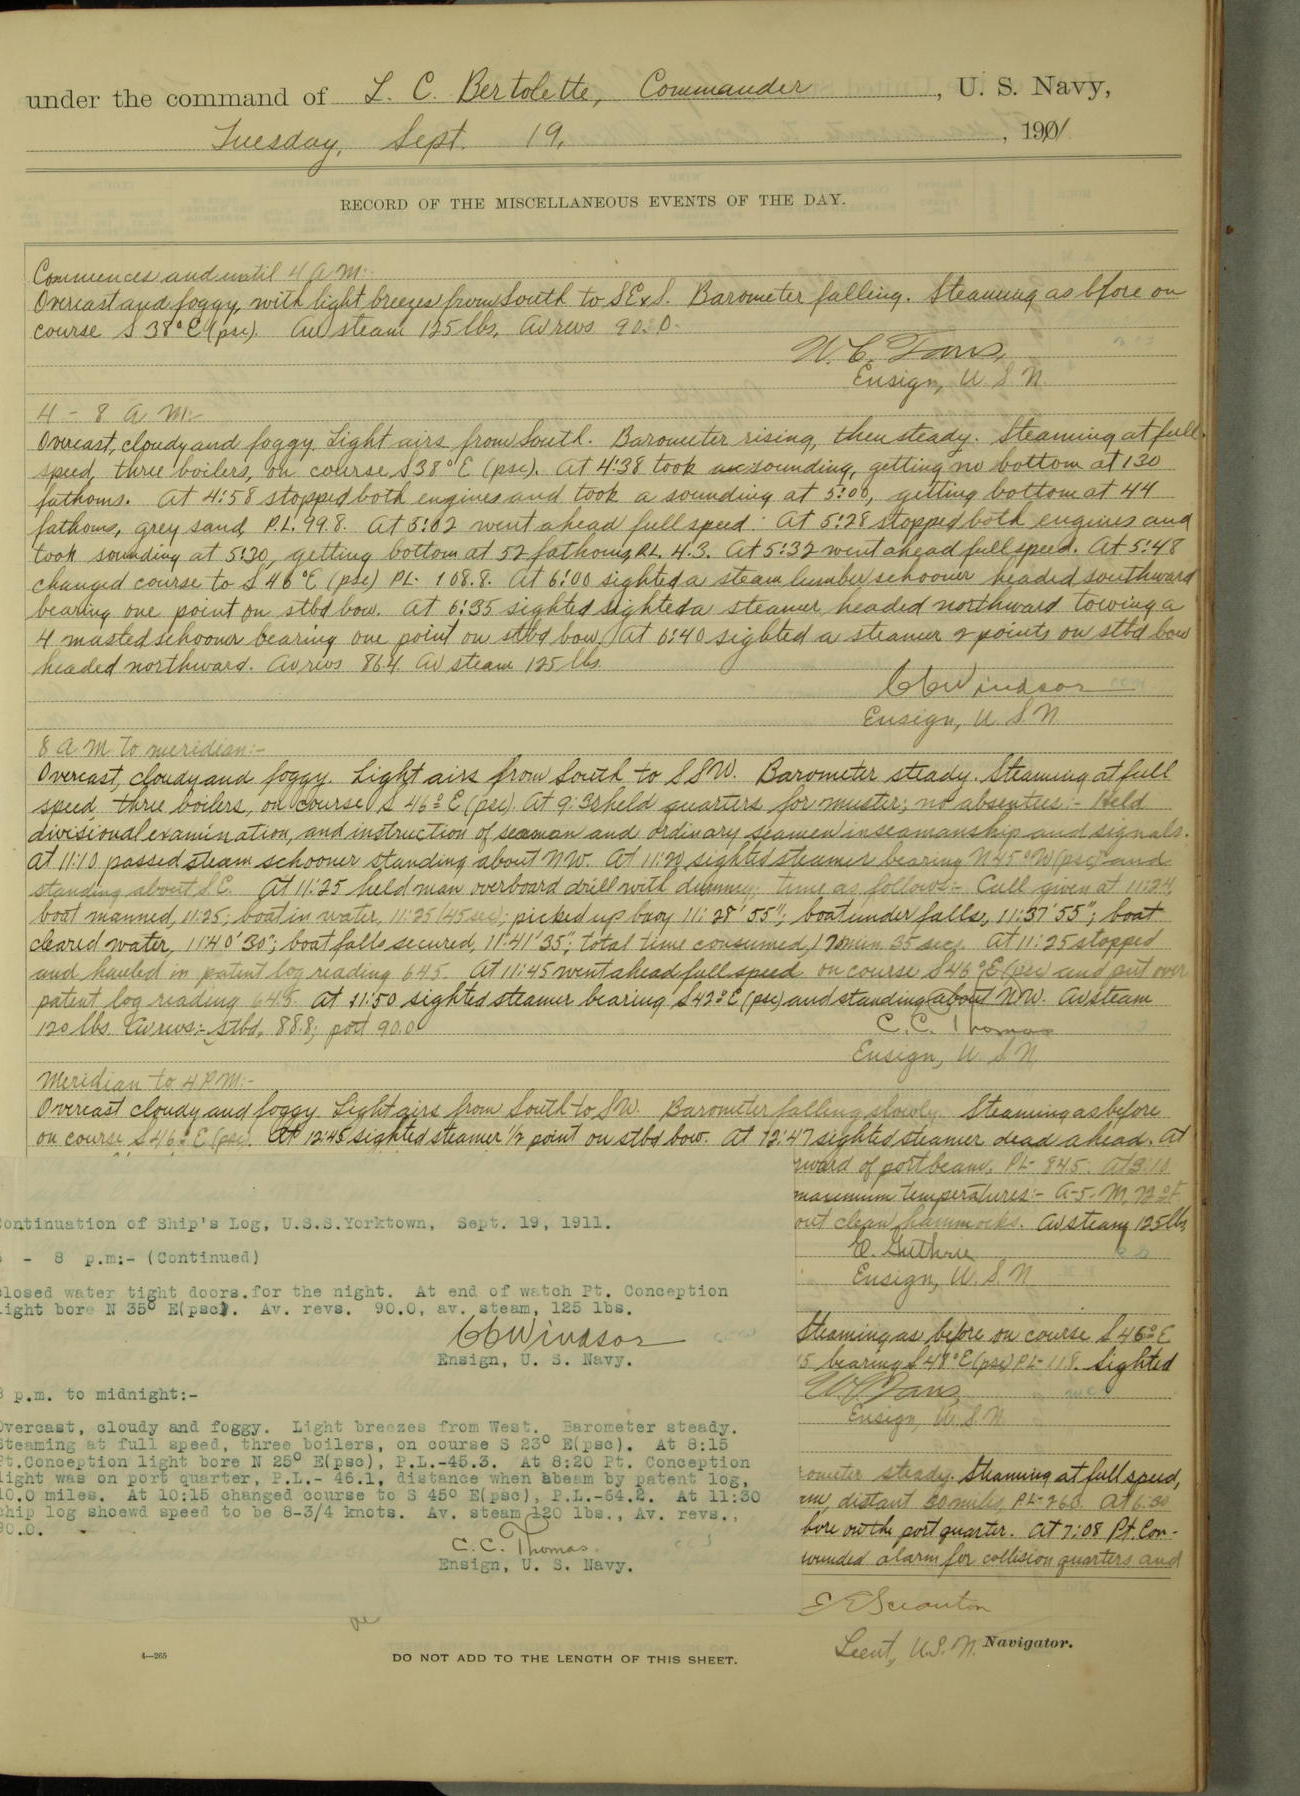 under the command of L. C. Bertolette, Commander, U. S. Navy,
Tuesday, Sept. 19, 1901
RECORD OF THE MISCELLANEOUS EVENTS OF THE DAY.
Commences and until 4 A.M:-
Overcast and foggy, with light breezes from South to SExS. Barometer falling. Steaming as bfore on
course S 38° E (psc). Av steam 125 lbs, Av revs 90.0.
Ensign, U S N
4 - 8 A M:-
Overcast, cloudy and foggy. Light airs from South. Barometer rising, then steady. Steaming at full
speed, three boilers, on course S 38° E (psc). At 4:38 took sounding, getting no bottom at 130
fathoms. At 4:58 stopped both engines and took a sounding at 5:00, getting bottom at 44
fathoms, grey sand, P.L. 99.8. At 5:02 went ahead full speed. At 5:28 stopped both engines and
took sounding at 5:30, getting bottom at 52 fathoms, P.L. 4.3. At 5:32 went ahead full speed. At 5:48
changed course to S 46° E (psc) PL- 108.8. At 6:00 sighted a steam lumber schooner headed southward
bearing one point on stbd bow. At 6:35 sighted sighted a steamer headed northward towing a
4 masted schooner bearing one point on stbd bow. At 6:40 sighted a steamer 2 points on stbd bow
headed northward. Av revs 86.4 Av steam 125 lbs.
CCWindsor
Ensign, U. S. N
8 A M to meridian:-
Overcast, cloudy and foggy. Light airs from South to SSW. Barometer steady. Steaming at full
speed, three boilers, on course S 46° E (psc). At 9:30 held quarters for muster; no absentees:- Held
divisional examination, and instruction of seaman and ordinary seamen in seamanship and signals.
At 11:10 passed steam schooner standing about NW. At 11:20 sighted steamer bearing N 45° W (psc) and
standing about S.E. At 11:25 held man overboard drill with dummy; time as follows:- Call given at 11:24,
boat manned, 11:25; boat in water, 11:25 (45 sec); picked up buoy 11:28'55"; boat under falls, 11:37'55"; boat
cleared water, 11:40'30"; boat falls secured, 11:41'35"; total time consumed, 17 min 35 secs. At 11:25 stopped
and hauled in patent log reading 64.5. At 11:45 went ahead full speed on course S 46° E (psc) and put over
patent log reading 64.5. At 11:50 sighted steamer bearing S 42° E (psc) and standing about NW. Av steam
120 lbs. Av revs:- stbd, 88.8; port 90.0
C. C. Thomas
Ensign, U S N
Meridian to 4 P.M:-
Overcast cloudy and foggy. Light airs from South to SW. Barometer falling slowly. Steaming as before
on course S 46° E (psc). At 12:45 sighted steamer 1/2 point on stbd bow. At 12:47 sighted steamer dead ahead. At
rward of port beam, PL- 84.5. At 3:10
maximum temperatures:- A-5-M, 72° F
out clean hammocks. Av steam, 125 lbs
E. Guthrie
Ensign, U. S. N
Steaming as before on course S 46° E
15 bearing S 48° E (psc) PL- 11.8. Sighted
Ensign, U. S. N
rometer steady. Steaming at full speed,
distant 30 miles, PL- 26.0. At 6:30
bore on the port quarter. At 7:08 Pt. Con-
sounded alarm for collision quarters and
Scranton
Lieut, U.S.N. Navigator.
ontinuation of Ship's Log, U.S.S.Yorktown, Sept. 19, 1911.
- 8 p.m:- (Continued)
closed water tight doors.for the night. At end of watch Pt. Conception
light bore N 35° E(psc). Av. revs. 90.0, av. steam, 125 lbs.
CCWindsor
Ensign, U. S. Navy.
8 p.m. to midnight:-
Overcast, cloudy and foggy. Light breezes from West. Barometer steady.
Steaming at full speed, three boilers, on course S 23° E(psc). At 8:15
Pt.Conception light bore N 25° E(psc), P.L.-45.3. At 8:20 Pt. Conception
light was on port quarter, P.L.- 46.1, distance when abeam by patent log,
10.0 miles. At 10:15 changed course to S 45° E(psc), P.L.-64.2. At 11:30
ship log shoewd speed to be 8-3/4 knots. Av. steam 120 lbs., Av. revs.,
90.0.
C.C. Thomas.
Ensign, U. S. Navy.
4—265
DO NOT ADD TO THE LENGTH OF THIS SHEET.